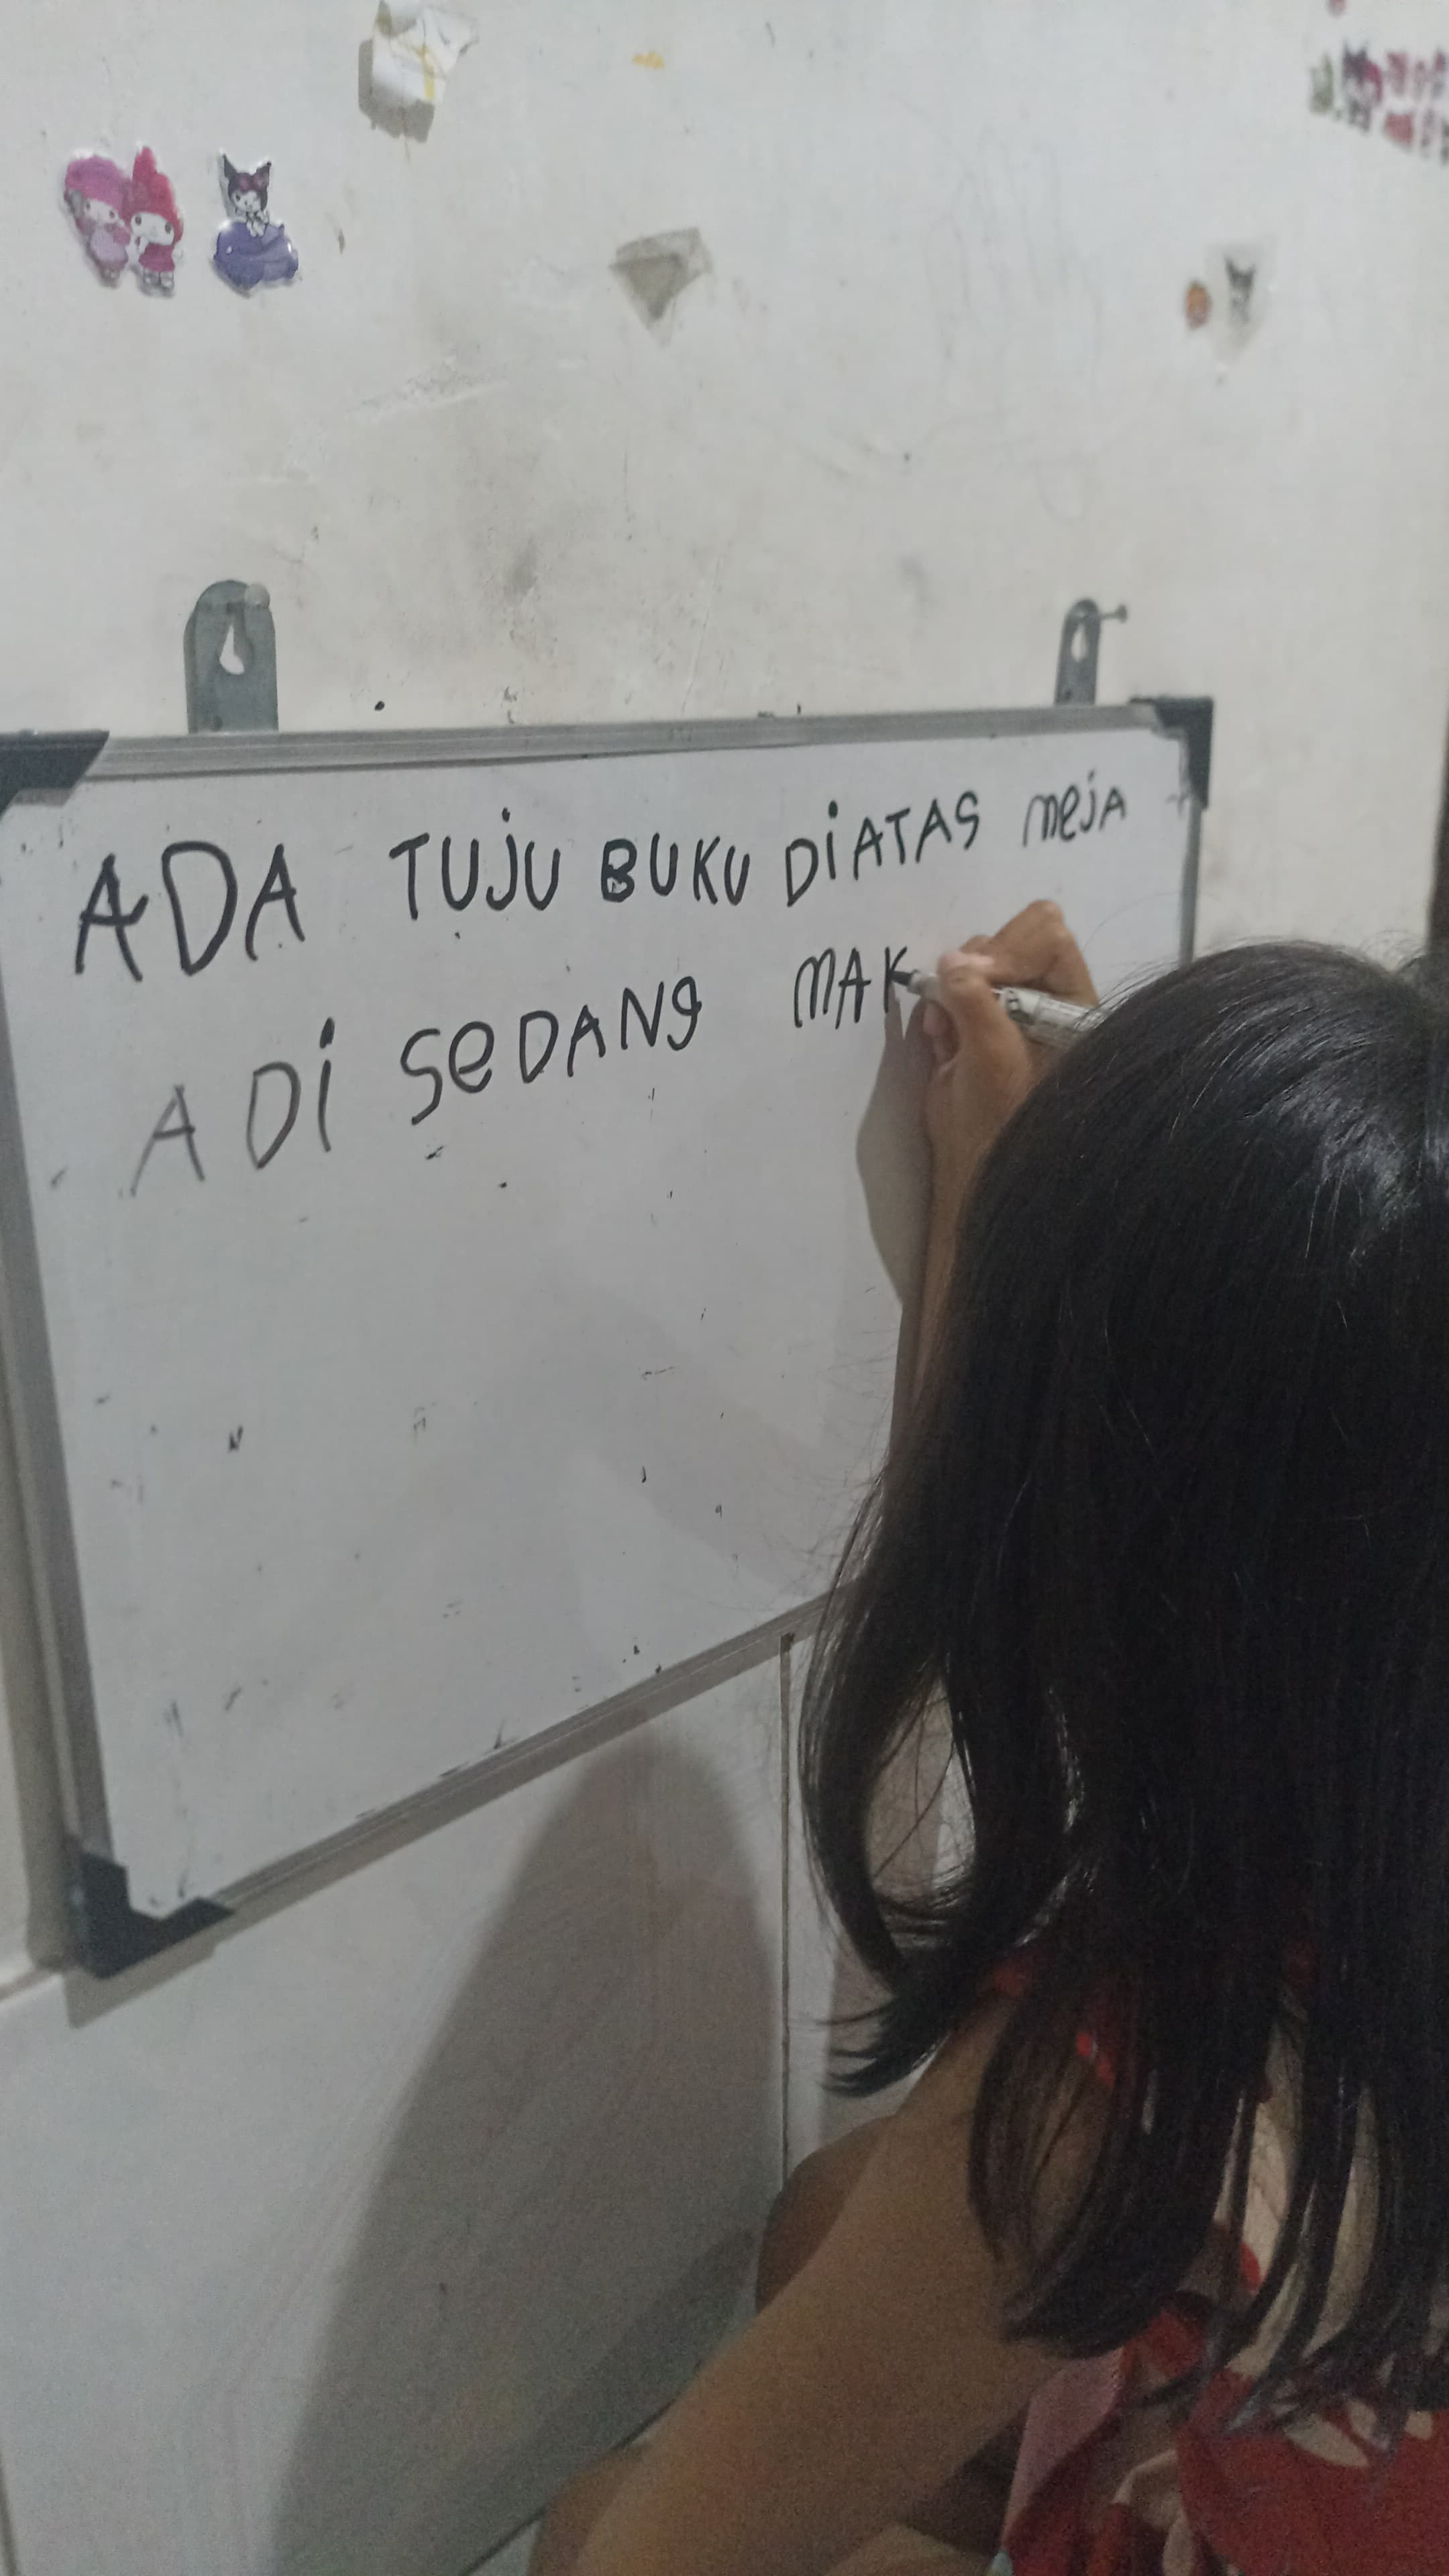 ADA TUJU BUKU DiATAS mejA
ADi SeDANg MAK